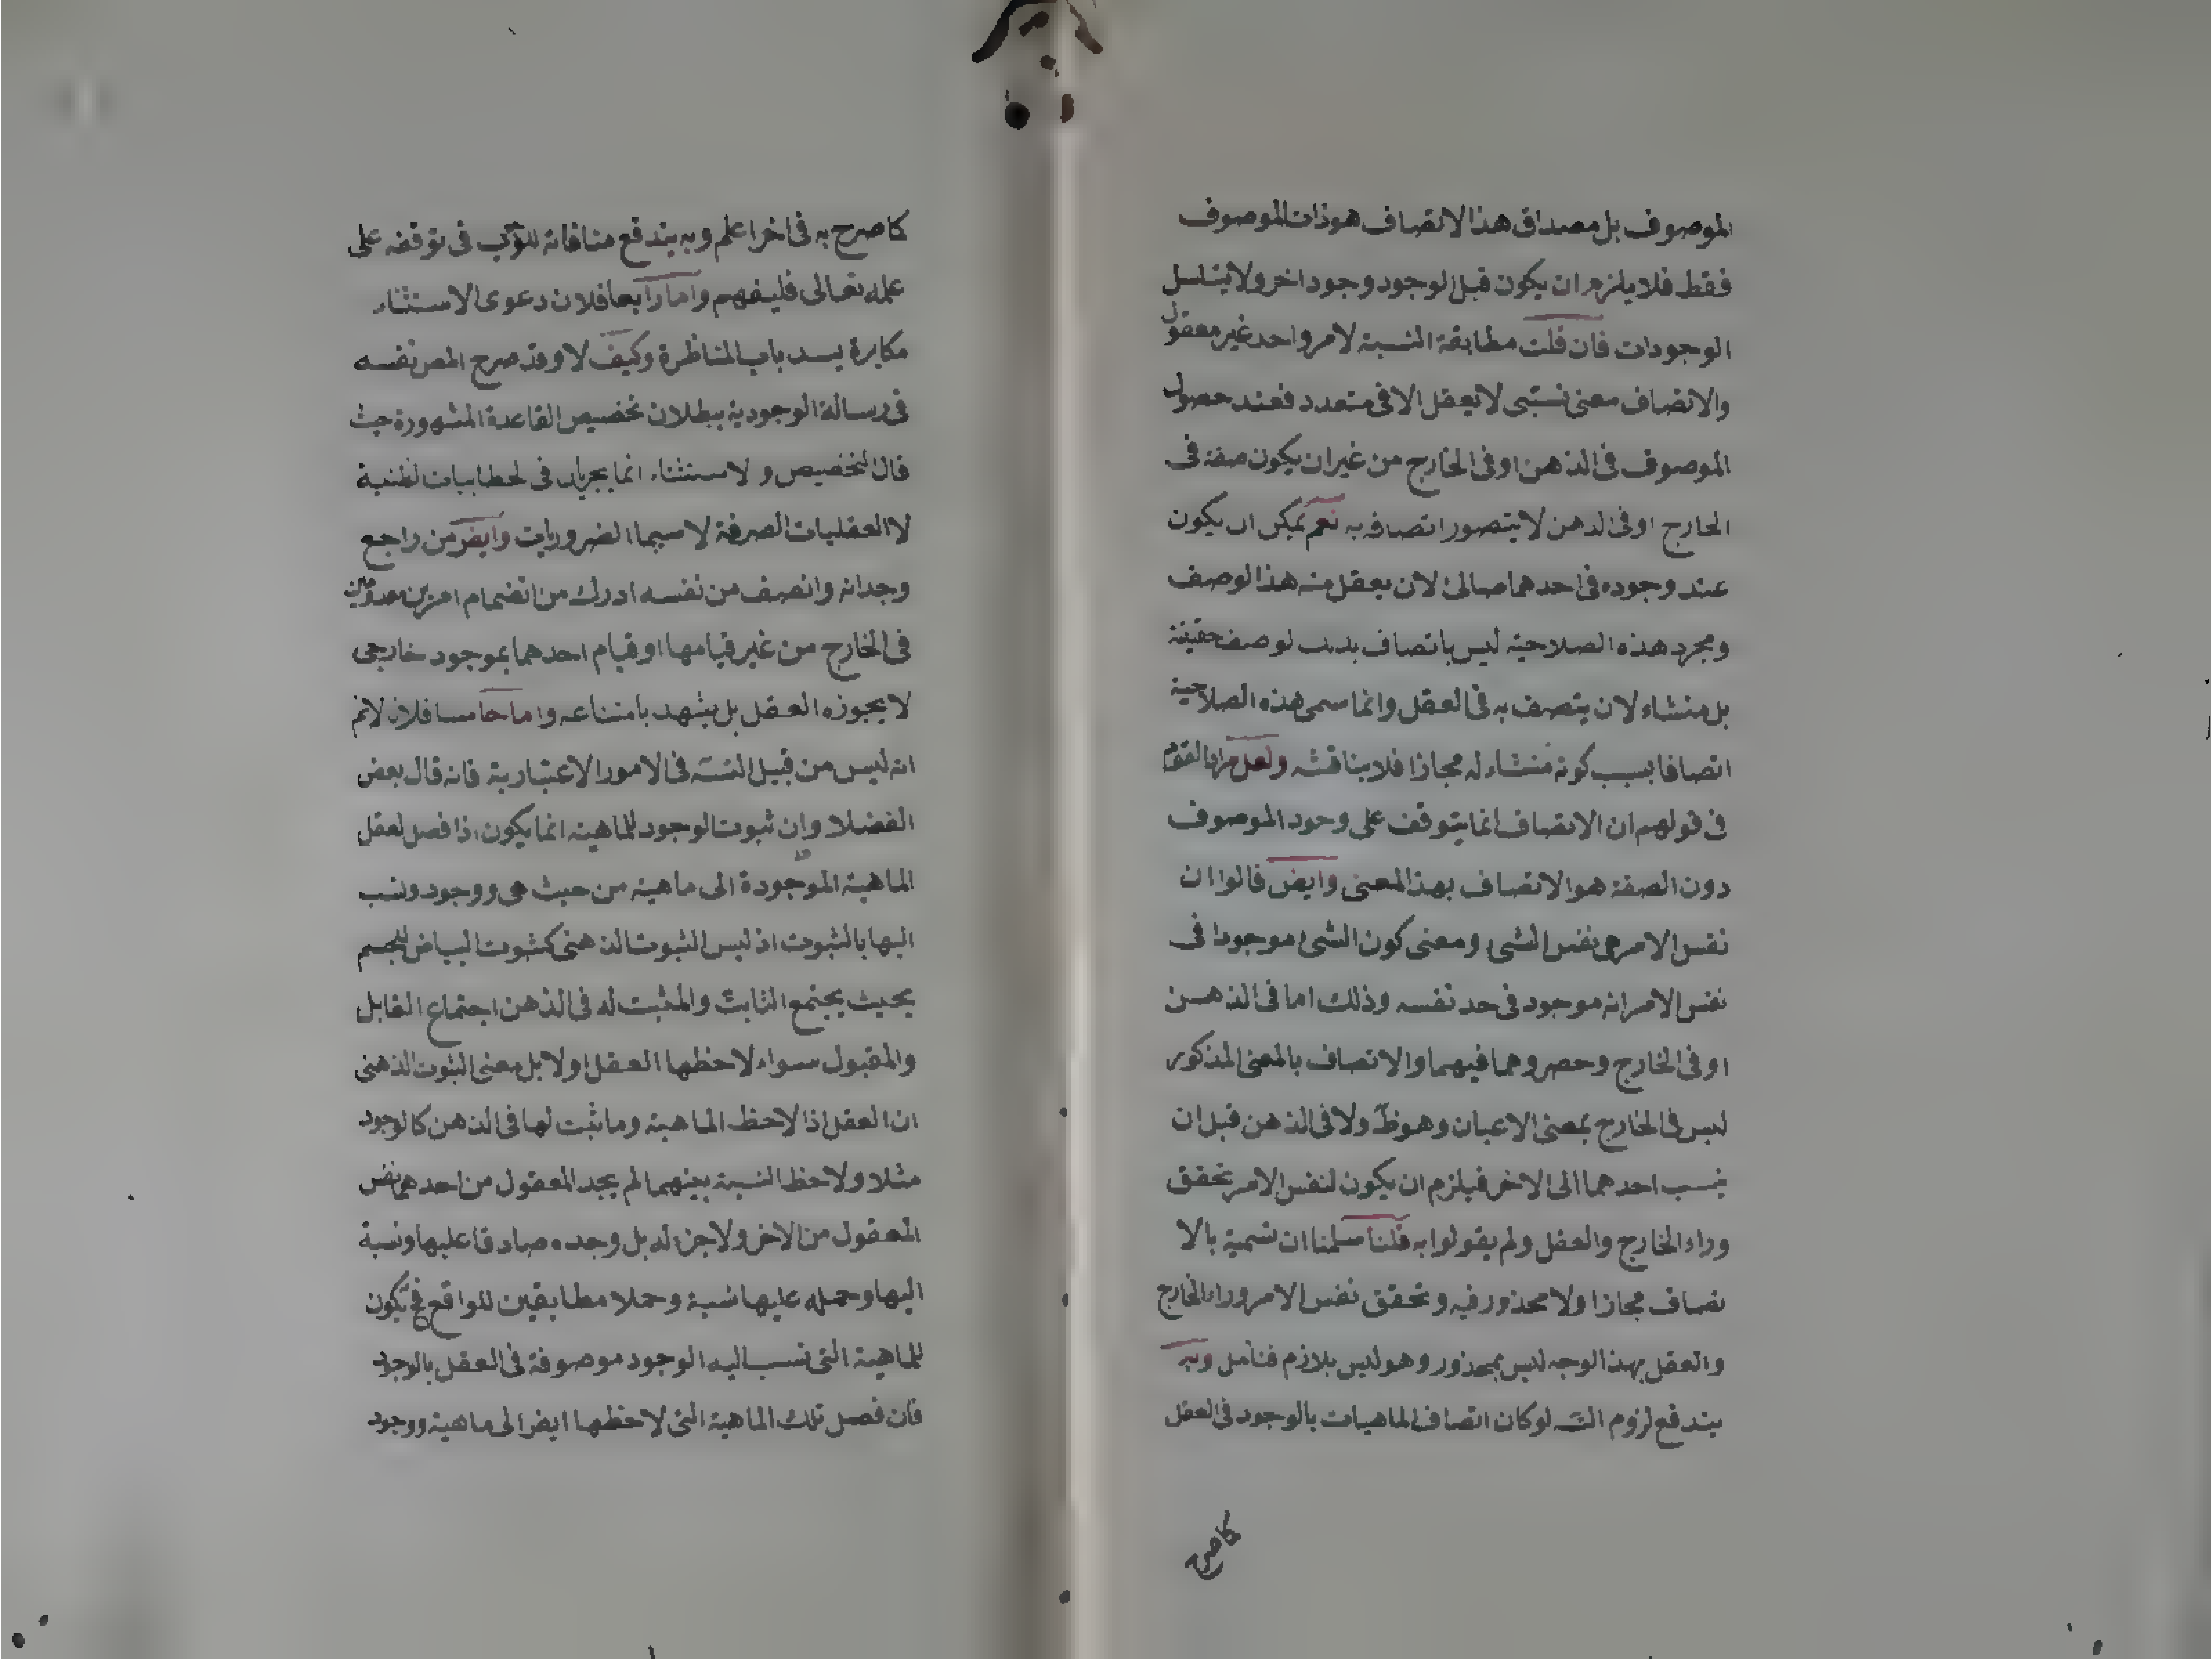 الموصوف بل مصداق هذا الاتصاف هو ذات الموصوف
فقط فلا يلزم ان يكون قبل الوجود وجود اخر ولا يتسلسل
الوجودات فان قلت مطابقة النسبة لامر واحد غير معقول
والاتصاف معنى نسبى لا يعقل الا فى متعدد فعند حصول
الموصوف فى الذهن او فى الخارج من غير ان يكون صفة فى
الخارج او فى الذهن لا يتصور اتصافه به نعم يمكن ان يكون
عند وجوده فى احدهما صالى لان يعقل منه هذا الوصف
ومجرد هذه الصلاحية ليس باتصاف بذلك لوصف حقيقة
بل منشاء لان يتصف به فى العقل وانما سمى هذه الصلاحية
اتصافا بسبب كونه منشاء له مجازا فلا يناقشه ولعل مراد القوم
فى قولهم ان الاتصاف انما يتوقف على وجود الموصوف
دون الصفة هو الاتصاف بهذا المعنى وايض قالوا ان
نفس الامر هى نفس الشئ ومعنى كون الشئ موجودا فى
نفس الامر انه موجود فى حد نفسه وذلك اما فى الذهن
او فى الخارج وحصروهما فيهما والاتصاف بالمعنى المذكور
ليس فى الخارج بمعنى الاعيان وهو ظ ولا فى الذهن قبل ان
ينسب احدهما الى الاخر فيلزم ان يكون لنفس الامر تحقق
وراء الخارج والعقل ولم يقولوا به قلنا سلمنا ان تسمية بالا
تصاف مجازا ولا محذور فيه وتحقق نفس الامر وراء الخارج
والعقل بهذا الوجه ليس بمحذور وهو ليس بلازم فتأمل وبه
يندفع لزوم التس لو كان اتصاف الماهيات بالوجود فى العقل
كما صرح
كما صرح به فى اخر اعلم وبه يندفع منافاته للمؤثر فى توقفه على
علمه تعالى فليفهم واما رابعا فلان دعوى الاستثناء
مكابرة يسد باب المناظرة وكيف لا وقد صرح المص نفسه
فى رسالة الوجودية ببطلان تخصيص القاعدة المشهورة حيث
قال التخصيص ولاستثناء انما يجريان فى لخطابيات لظنية
لا العقليات الصرفة لا سيما الضروريات وايض من راجع
وجدانه وانصف من نفسه ادرك من انضمام امرين معدومين
فى الخارج من غير قيامها او قيام احدهما بموجود خارجى
لا يجوزه العقل بل يشهد بامتناعه واما خامسا فلانه لا نم
انه ليس من قبيل التس فى الامور الاعتبارية فانه قال بعض
الفضلا وان ثبوت الوجود للماهية انما يكون اذا فصل لعقل
الماهية الموجودة الى ماهية من حيث هى ووجود ونسب
اليها بالثبوت اذ ليس الثبوت الذهنى كثبوت البياض للجسم
بحيث يجتمع الثابت والمثبت له فى الذهن اجتماع القابل
والمقبول سواء لاحظها العقل او لا بل معنى الثبوت الذهنى
ان العقل اذا لاحظ الماهية وما ثبت لها فى الذهن كالوجود
مثلا ولاحظ النسبة بينهما لم يجد المعقول من احدهما نفس
المعقول من الاخر ولا جزء له بل وجده صادقا عليها ونسبة
اليها وحمله عليها نسبة وحملا مطابقين للواقع فح يكون
للماهية التى نسب اليه الوجود موصوفة فى العقل بالوجود
فان فصل تلك الماهية التى لاحظها ايض الى ماهية ووجود